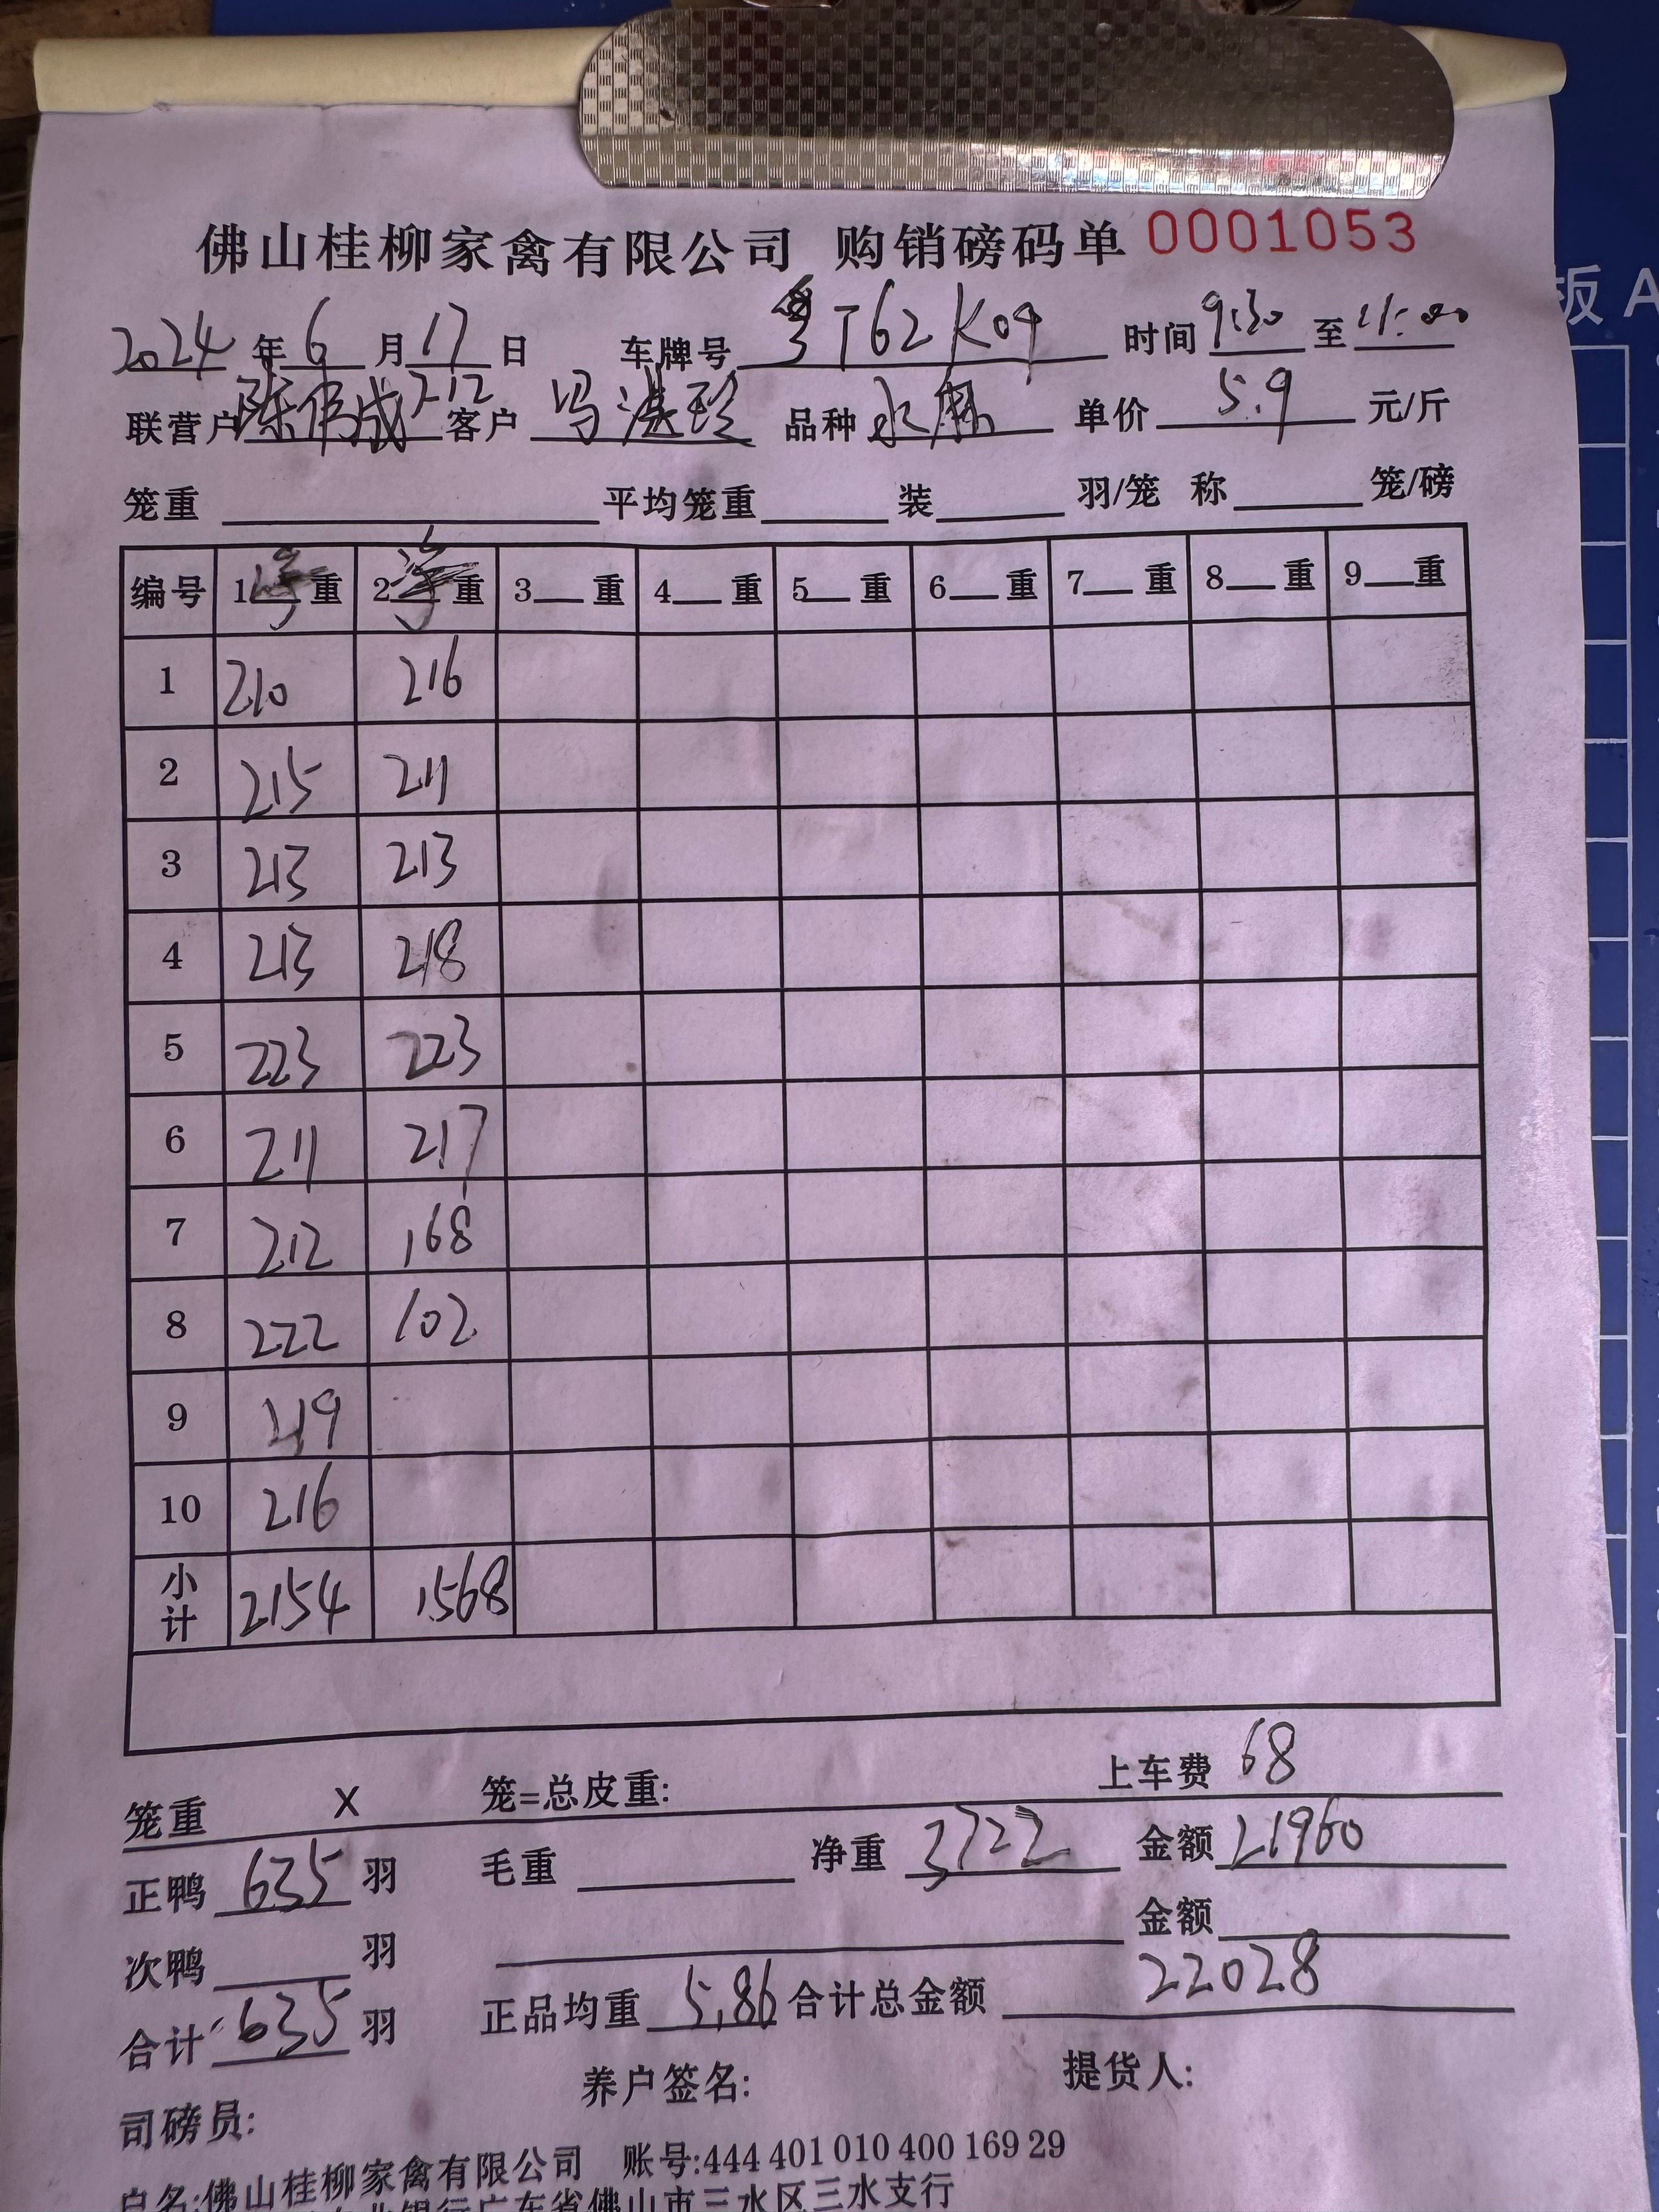 佛山桂柳家禽有限公司 购销磅码单 0001053
2024 年 6 月 17 日 车牌号 粤T62K09 时间 9:30 至 11:00
联营户 陈伟成212 客户 冯洪珍 品种 水麻 单价 5.9 元/斤
笼重 平均笼重 装 羽/笼 称 笼/磅
编号 1 净 重 2 净 重 3 重 4 重 5 重 6 重 7 重 8 重 9 重
1 210 216
2 215 211
3 213 213
4 213 218
5 223 223
6 211 217
7 212 168
8 222 102
9 219
10 216
小计 2154 1568
笼重 X 笼=总皮重: 上车费 68
正鸭 635 羽 毛重 净重 3722 金额 21960
次鸭 羽 金额
合计 635 羽 正品均重 5.86 合计总金额 22028
司磅员: 养户签名: 提货人:
户名:佛山桂柳家禽有限公司 账号:444 401 010 400 169 29
银行广东省佛山市三水区三水支行
板 A